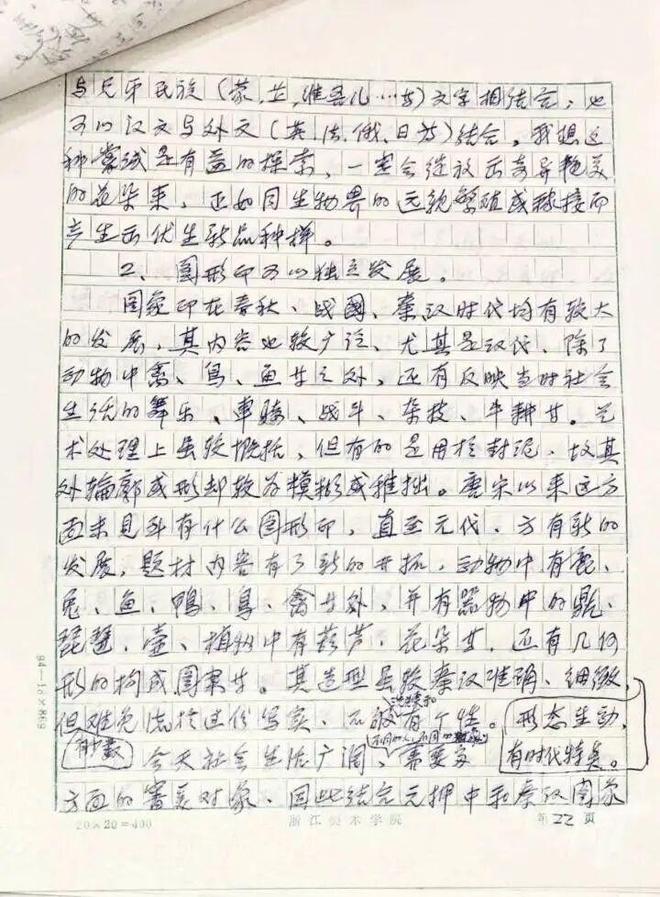 与兄弟民族(蒙、甘、维吾儿…等)文字相结合,也
可以汉文与外文(英、法、俄、日等)结合。我想这
种尝试是有益的探索,一定会绽放出奇异艳美
的花朵来,正如同生物界的远亲繁殖或稼接而
产生出优生新品种样。
2、图形印可以独立发展。
图象印在春秋、战國、秦汉时代均有较大
的发展,其内容也较广泛、尤其是汉代、除了
动物中禽、鸟、鱼等之外,还有反映当时社会
生活的舞乐、車骑、战斗、杂技、牛耕等。艺
术处理上虽较概括,但有的是用於封泥,故其
外轮廓或形却较为模糊或稚拙。唐宋以来这方
面未见到有什么图形印,直至元代,方有新的
发展,题材内容有了新的开拓,动物中有鹿、
兔、鱼、鴨、鸟、禽等外,并有器物中的鼎、
琵琶、壶、植物中有葫芦、花朵等,还有几何
形的构成图案等。其造型虽较秦汉准确、细緻,
但难免流於过份写实、不够有个性。形态生动,
有时代特点。
今天社会生活广阔、需要多
方面的審美对象、因此结合元押中和秦汉图象
20×20=400
浙江美术学院
第22页